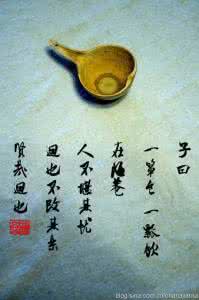 子曰
一箪食 一瓢饮
在陋巷
人不堪其忧
回也不改其乐
贤哉回也